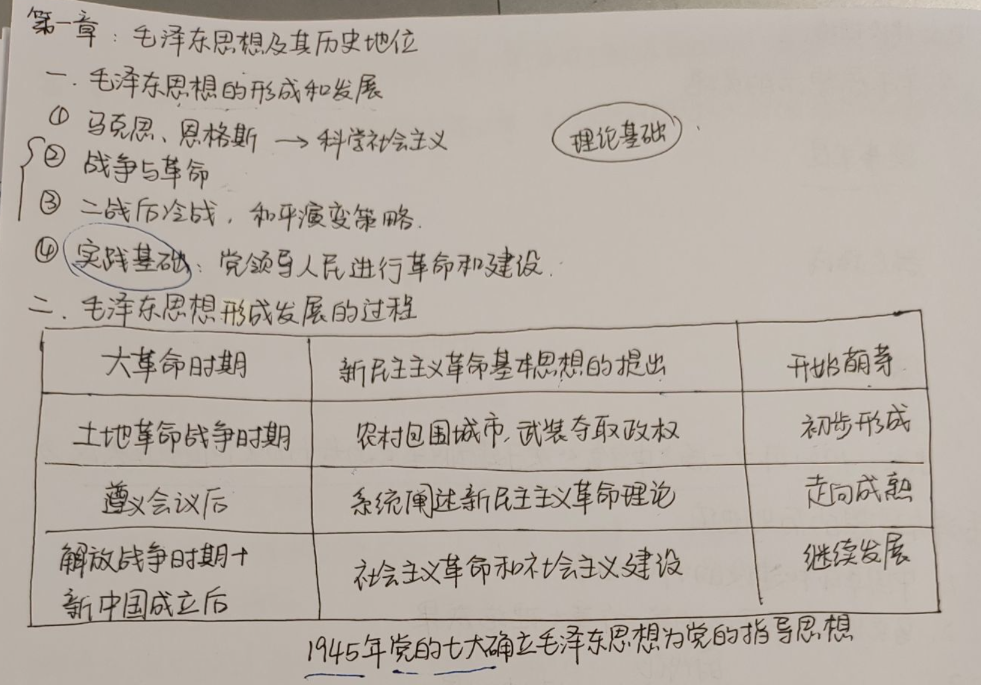 第一章：毛泽东思想及其历史地位
一．毛泽东思想的形成和发展
① 马克思、恩格斯 → 科学社会主义 理论基础
② 战争与革命
③ 二战后冷战，和平演变策略．
④ 实践基础：党领导人民进行革命和建设．
二．毛泽东思想形成发展的过程
大革命时期 新民主主义革命基本思想的提出 开始萌芽
土地革命战争时期 农村包围城市，武装夺取政权 初步形成
遵义会议后 系统阐述新民主主义革命理论 走向成熟
解放战争时期+ 社会主义革命和社会主义建设 继续发展
新中国成立后
1945年党的七大确立毛泽东思想为党的指导思想